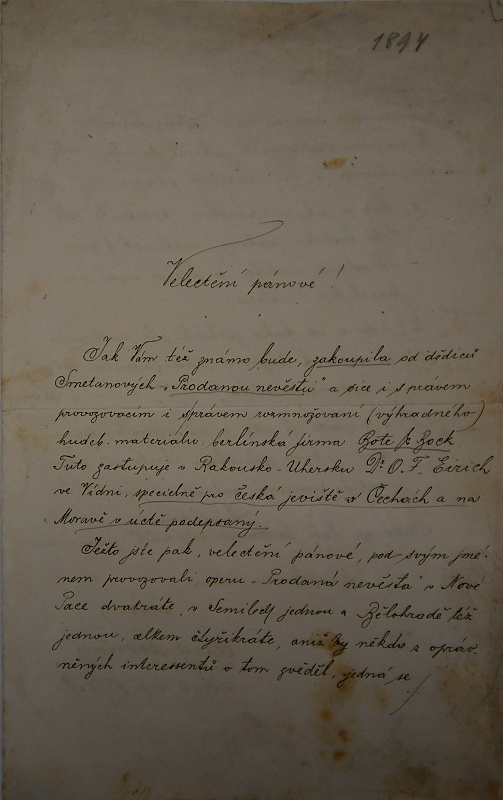 1894
Velectění pánové!
Jak Vám též známo bude, zakoupila od dědiců
Smetanových „Prodanou nevěstu" a sice i s právem
provozovacím i správem rozmnožovaní (výhradného)
hudeb. materiálu berlínská firma Bote & Bock
Tuto zastupuje v Rakousko-Uhersku Dr. O. F. Eirich
ve Vídni, specielně pro česká jeviště v Čechách a na
Moravě v úctě podepsaný.
Ježto jste pak, velectění pánové, pod svým jmé-
nem provozovali operu „Prodaná nevěsta" v Nové
Pace dvakráte, v Semilech jednou a Bělohradě též
jednou, celkem čtyřikráte, aniž by někdo z opráv-
něných interessentů o tom zvěděl, jedná se